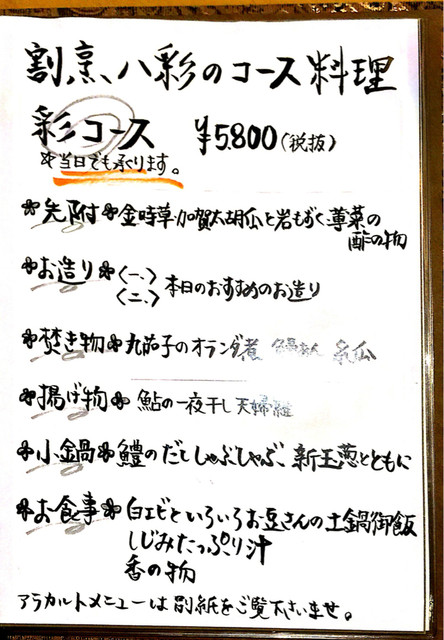 割烹、八彩のコース料理
彩コース ¥5.800(税抜)
※当日でも承ります。
先附 金時草・加賀太胡瓜と岩もずく蓴菜の
酢の物
お造り 〈一、〉
〈二、〉 本日のおすすめのお造り
焚き物 丸茄子のオランダ煮 糸瓜
揚げ物 鮎の一夜干し天婦羅
小鍋 鱧のだししゃぶしゃぶ 新玉葱とともに
お食事 白エビといろいろお豆さんの土鍋御飯
しじみたっぷり汁
香の物
アラカルトメニューは別紙をご覧下さいませ。